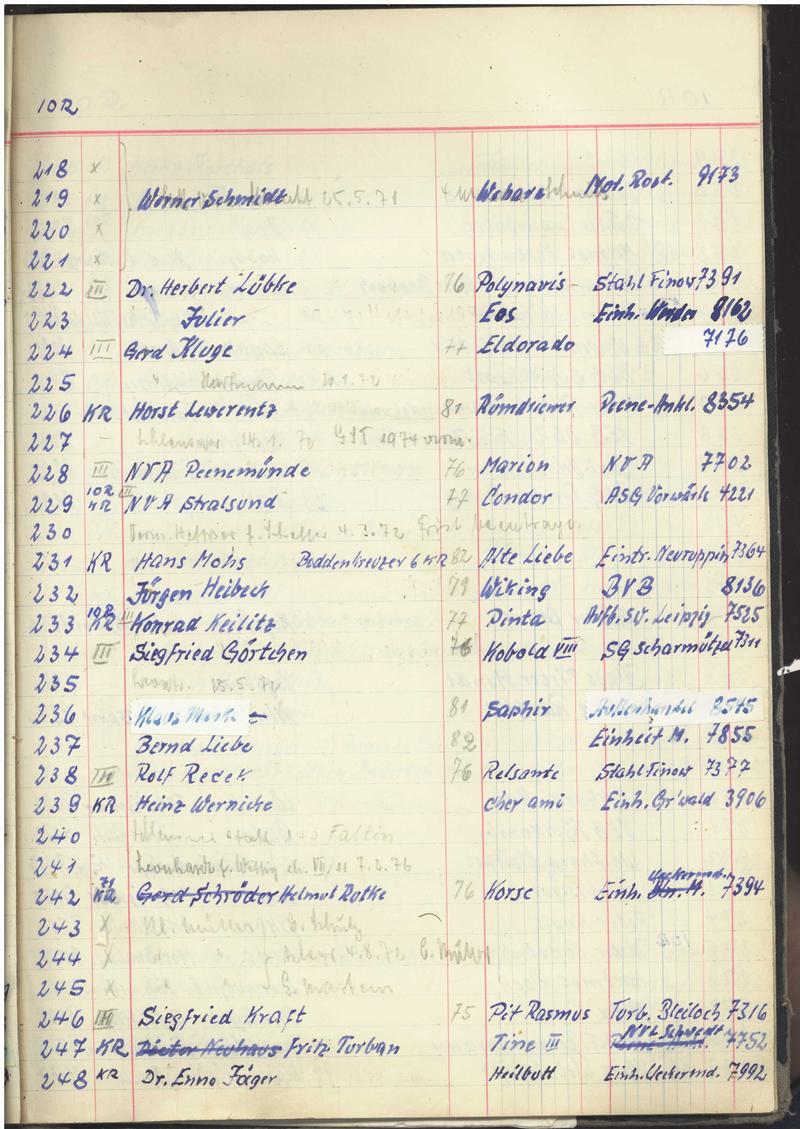 10R
218 x
219 x Werner Schmidt 25.5.71 Mot. Rost. 9173
220 x
221 x
222 III Dr. Herbert Lübke 76 Polynavis Stahl Finow 7391
223 Julier Eos Einh. 8162
224 III Gerd Kluge 77 Eldorado 7176
225 " Hartmann 72
226 KR Horst Lewerentz 81 Römdriewer Peene-Ankl. 8354
227 – 14.1. GST 1974
228 III NVA Peenemünde 76 Marion NVA 7702
229 10R KR III NVA Stralsund 77 Condor ASG Vorwärts 4221
230 4.3.72
231 KR Hans Mohs Boddenkreuzer 6 KR 82 Alte Liebe Eintr. Neuruppin 7364
232 Jürgen Heibeck 79 Wiking BVB 8136
233 10R KR III Konrad Keilitz 77 Dinta Aufb. SW. Leipzig 7525
234 III Siegfried Görtchen 76 Kobold VIII SG Scharmützel 7311
235 5.72
236 Klaus 81 Saphir Außenhandel 8545
237 Bernd Liebe 82 Einheit M. 7855
238 III Rolf Redek 76 Relsante Stahl Finow 7377
239 KR Heinz Wernicke cher ami Einh. Gr'wald 3906
240 Faltin
241 Leonhardt 7.2.76
242 71 KR Gerd Schröder Helmut Rotke 76 Korse Einh. Ueckermd. 7394
243 x G. Schulz
244 x " 4.8.72
245 x " G. Martens
246 III Siegfried Kraft 75 Pit Rasmus Turb. Bleiloch 7316
247 KR Dieter Neuhaus Fritz Turban Tine III NVL Schwedt 7752
248 KR Dr. Enno Jäger Heilbutt Einh. Ueckermd. 7992